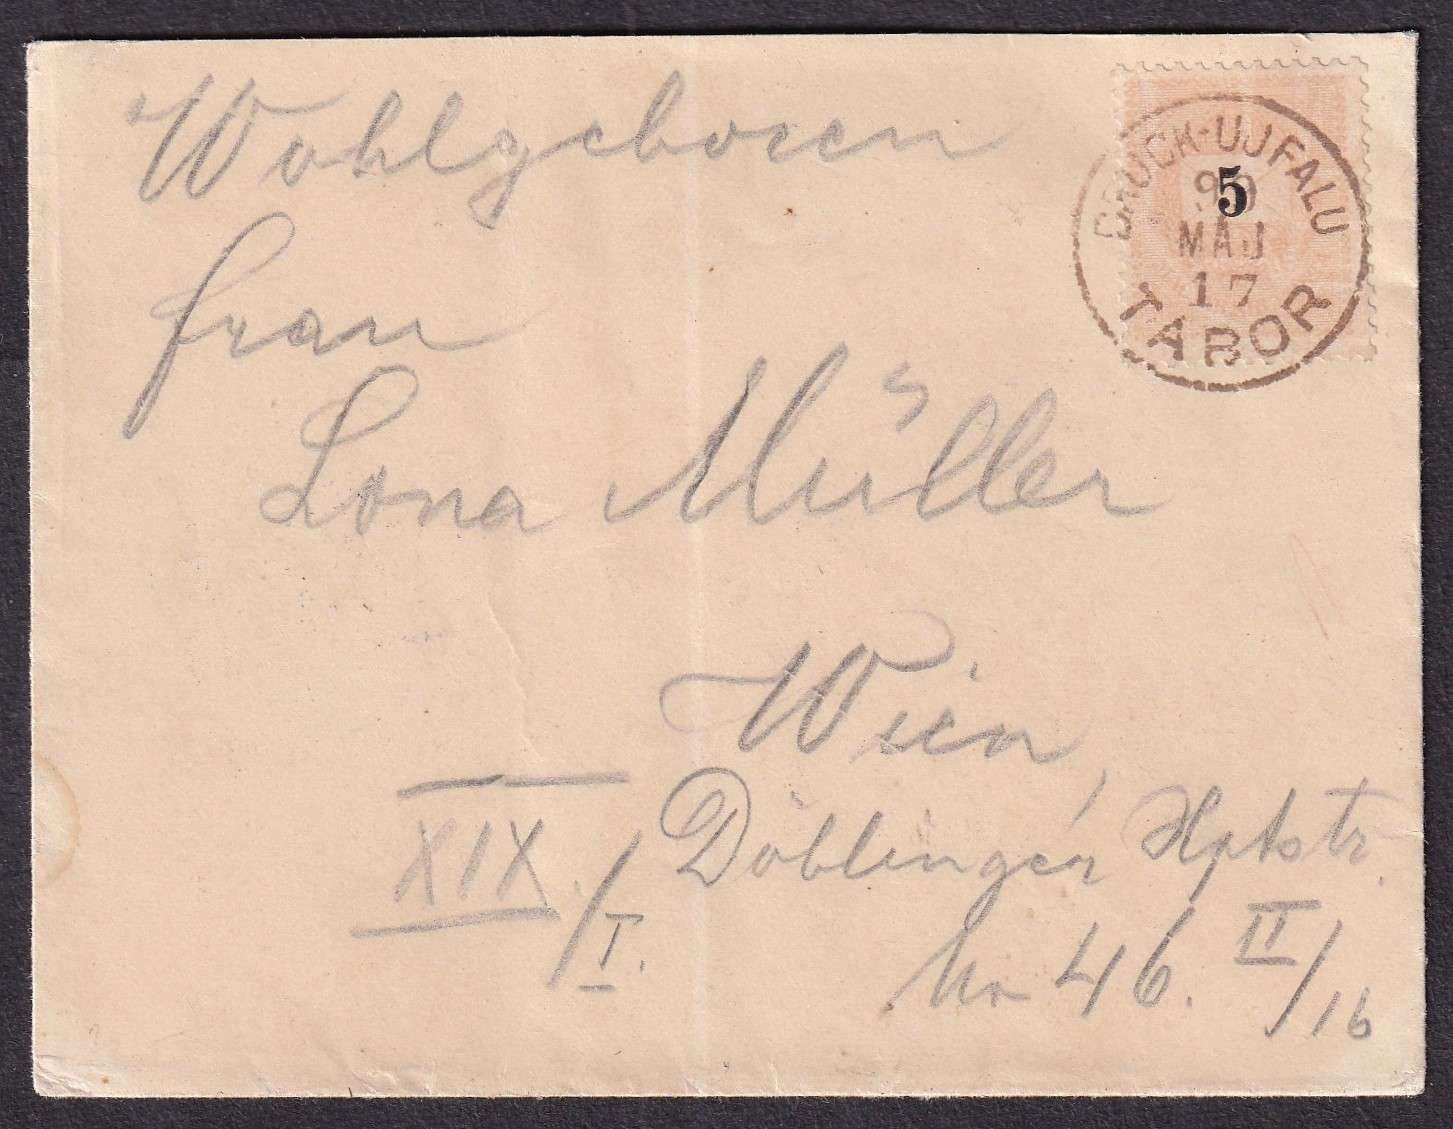 Wohlgeboren
Frau
Lona Müller
Wien,
XIX./I.
Döblinger Hptstr.
Nr 46. II/16
BRUCK-UJFALU
5
MAJ
17
TÁBOR